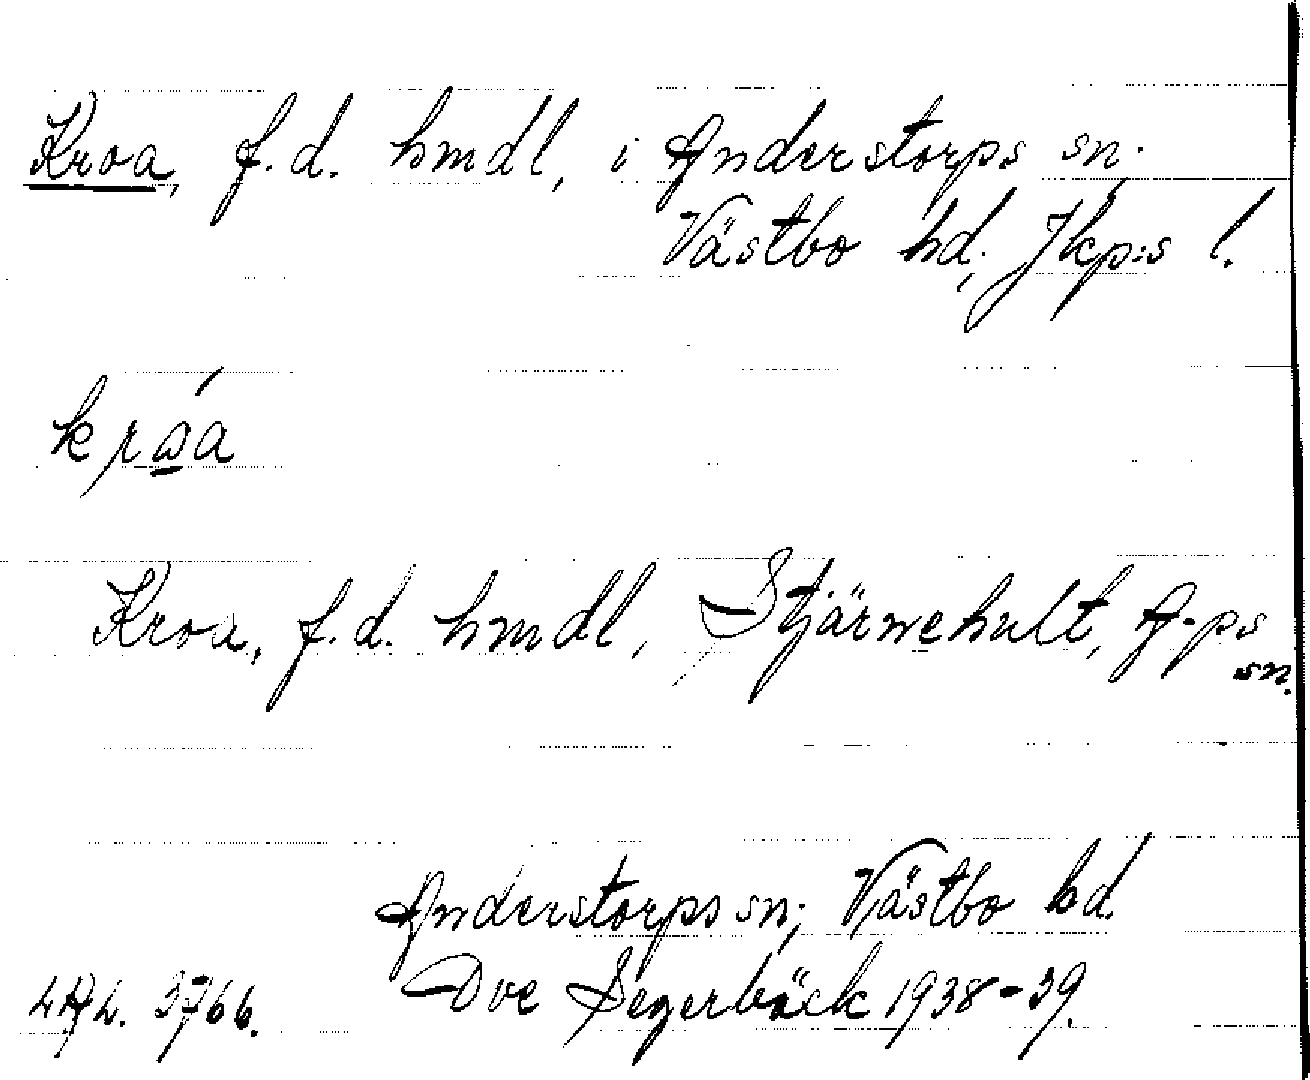 Kroa, f.d. hmdl, i Anderstorps sn.
Västbo hd, Jkp:s l.
kròá
Kroa, f.d. hmdl, Stjärnehult, A-ps sn.
Anderstorps sn, Västbo hd.
Ove Segerbäck 1938-39.
3766.